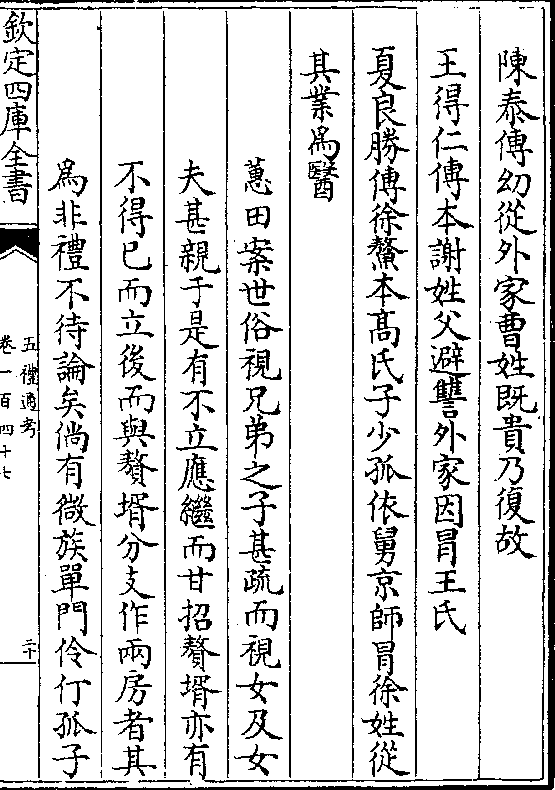 陳泰傳幼從外家曹姓既貴乃復故
王得仁傳本謝姓父避讐外家因冒王氏
夏良勝傳徐鰲本髙氏子少孤依舅京師冒徐姓從
其業爲醫
蕙田案世俗視兄弟之子甚疏而視女及女
夫甚親于是有不立應繼而甘招贅壻亦有
不得已而立後而與贅壻分支作兩房者其
爲非禮不待論矣倘有微族單門伶仃孤子
欽定四庫全書
五禮通考
卷一百四十七
二十